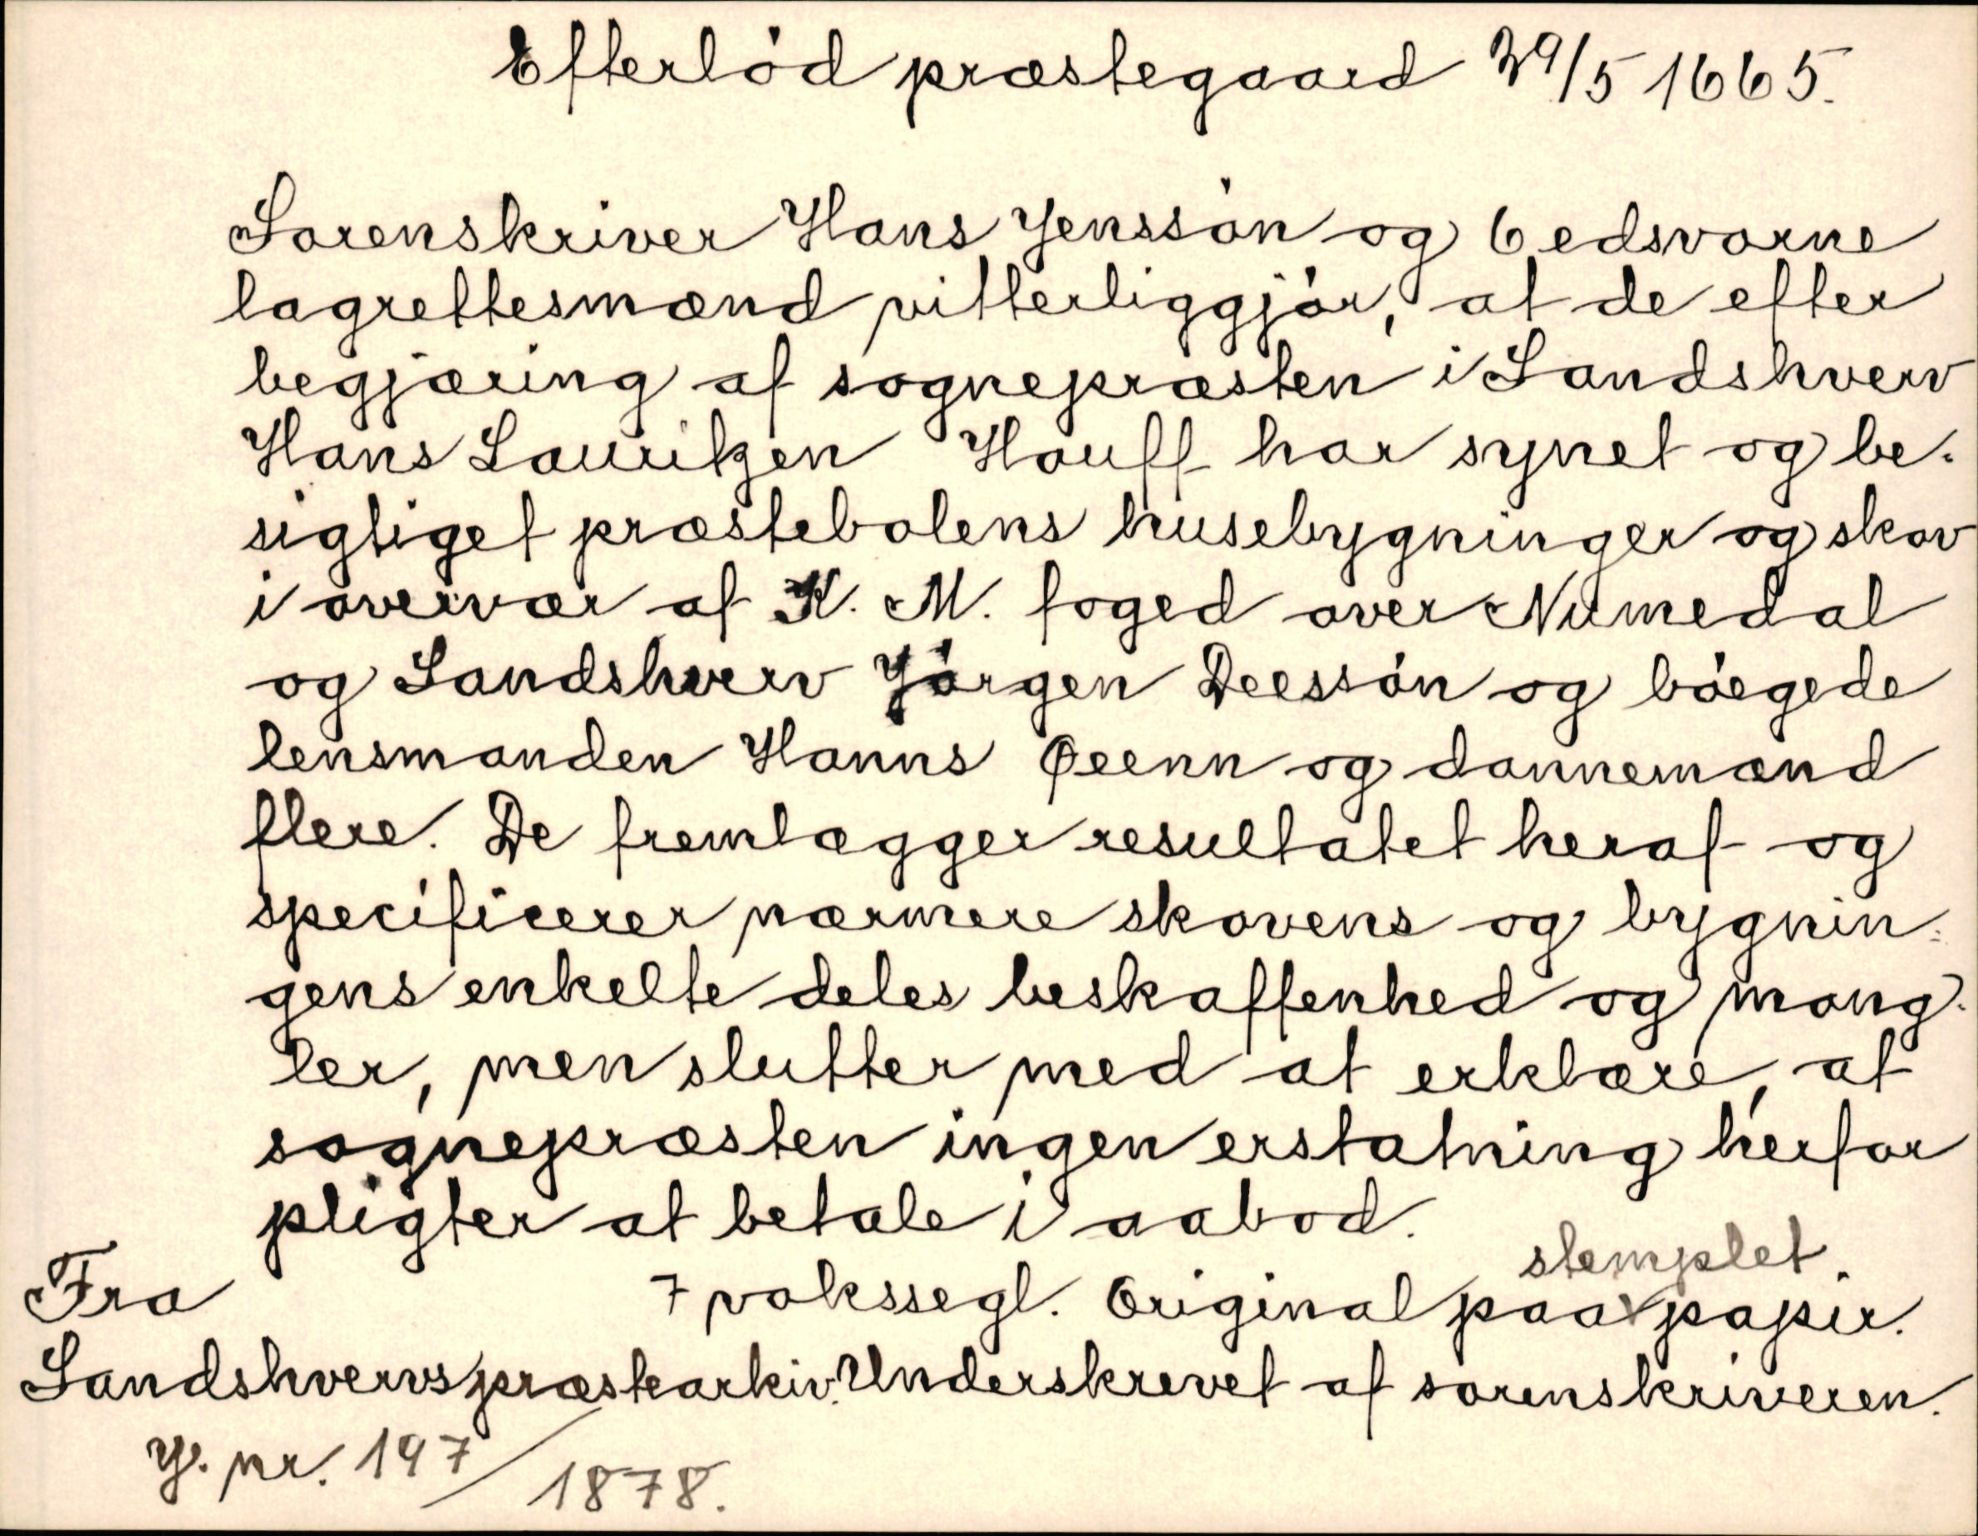 Efterlöd præstegaard 29/5 1665.
Sorenskriver Hans Jenssön og 6 edsvorne
lagrettesmænd vitterliggjör, at de efter
begjæring af sognepræsten i Sandshverv
Hans Lauritzen Houff har synet og be-
sigtiget præstebolens husebygninger og skov
i overvær af K. M. foged over Numedal
og Sandshverv Jörgen Deessön og böegede
lensmanden Hanns Øeenn og dannemænd
flere. De fremlægger resultatet heraf og
specificerer nærmere skovens og bygnin-
gens enkelte deles beskaffenhed og mang-
ler, men slutter med at erklære, at
sognepræsten ingen erstatning herfor
pligter at betale i aabod.
stemplet
Fra 7 vokssegl. Original paa papir.
Sandshvervs præstearkiv. Underskrevet af sorenskriveren.
J. nr. 197/1878.